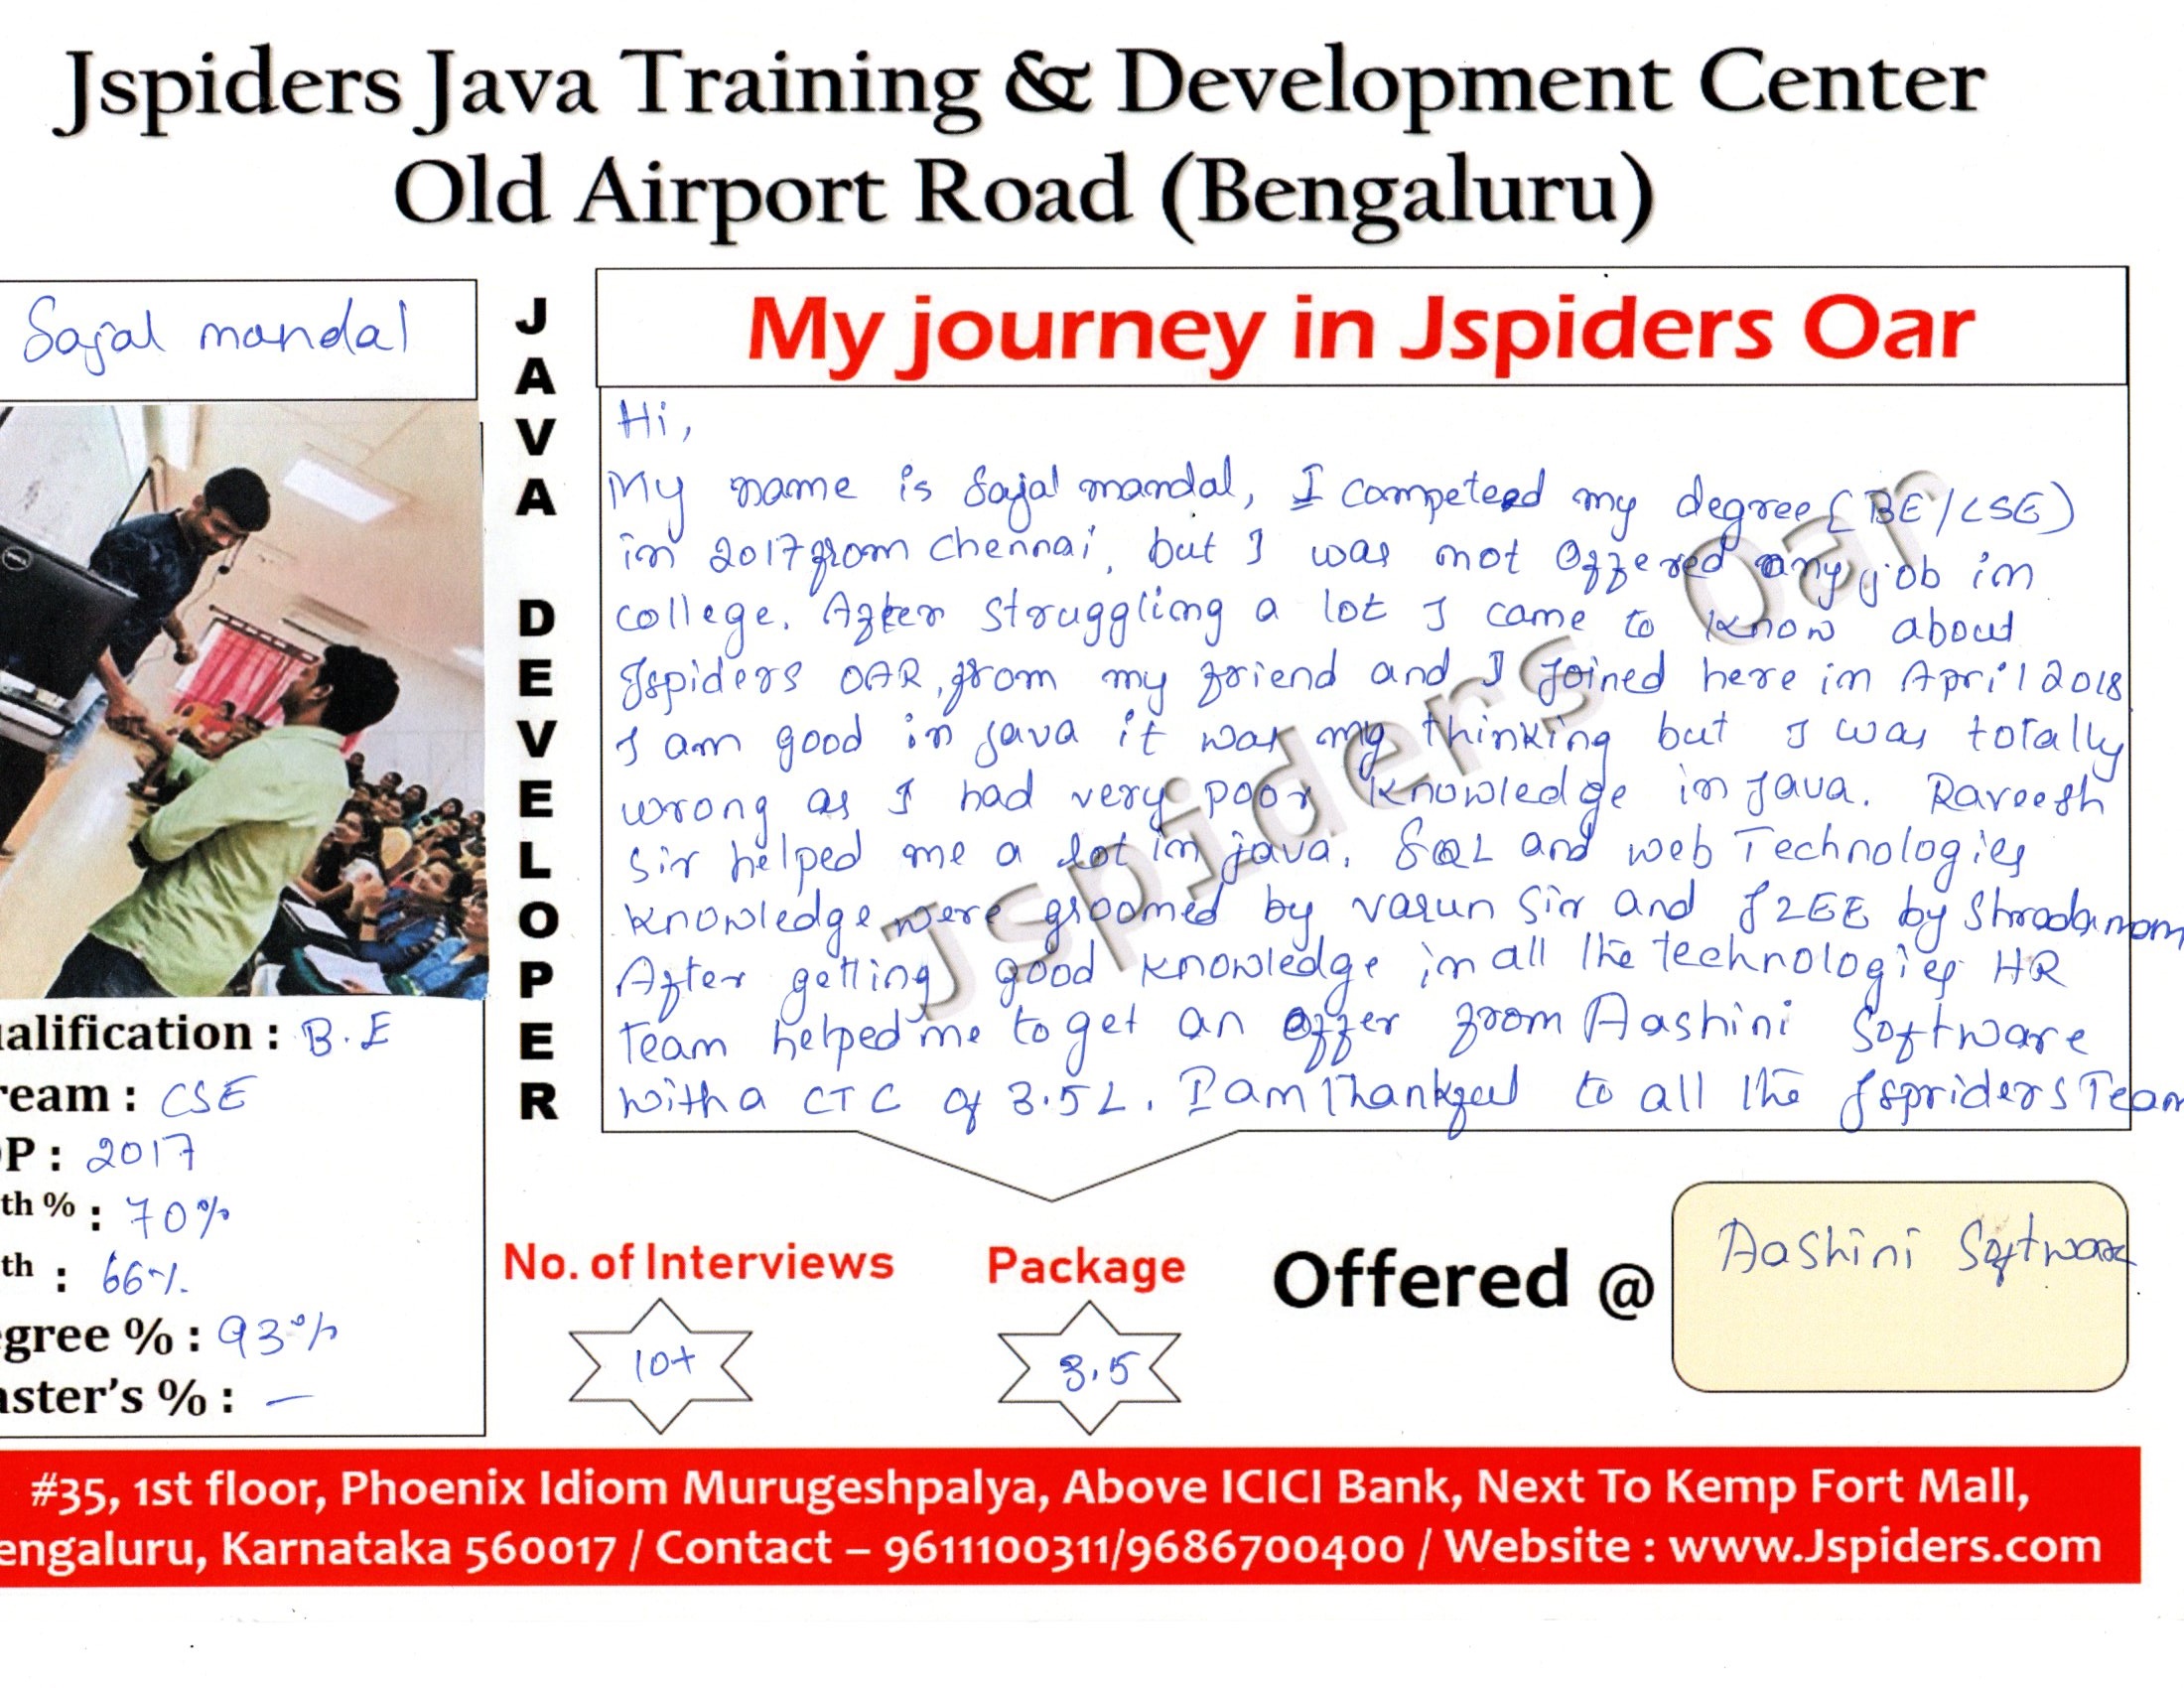 Jspiders Java Training & Development Center
Old Airport Road (Bengaluru)
Sajal mandal
JAVA DEVELOPER
My journey in Jspiders Oar
Hi,
My name is Sajal mandal, I competeed my degree (BE/CSE)
in 2017 from chennai, but I was not offered any job in
college. After struggling a lot I came to know about
Jspiders OAR, from my friend and I joined here in April 2018
I am good in java it was my thinking but I was totally
wrong as I had very poor knowledge in java. Raveesh
sir helped me a lot in java. SQL and web Technologies
knowledge were groomed by varun Sir and J2EE by
After getting good knowledge in all the technologies HR
Team helped me to get an offer from Aashini Software
with a CTC of 3.5 L. I am thankful to all the Jspriders Team
Jspiders Oar
alification : B.E
ream : CSE
P : 2017
th % : 70%
th : 66%
gree % : 93%
ster's % : —
No. of Interviews
10+
Package
3.5
Offered @
Aashini Software
#35, 1st floor, Phoenix Idiom Murugeshpalya, Above ICICI Bank, Next To Kemp Fort Mall,
engaluru, Karnataka 560017 / Contact – 9611100311/9686700400 / Website : www.Jspiders.com